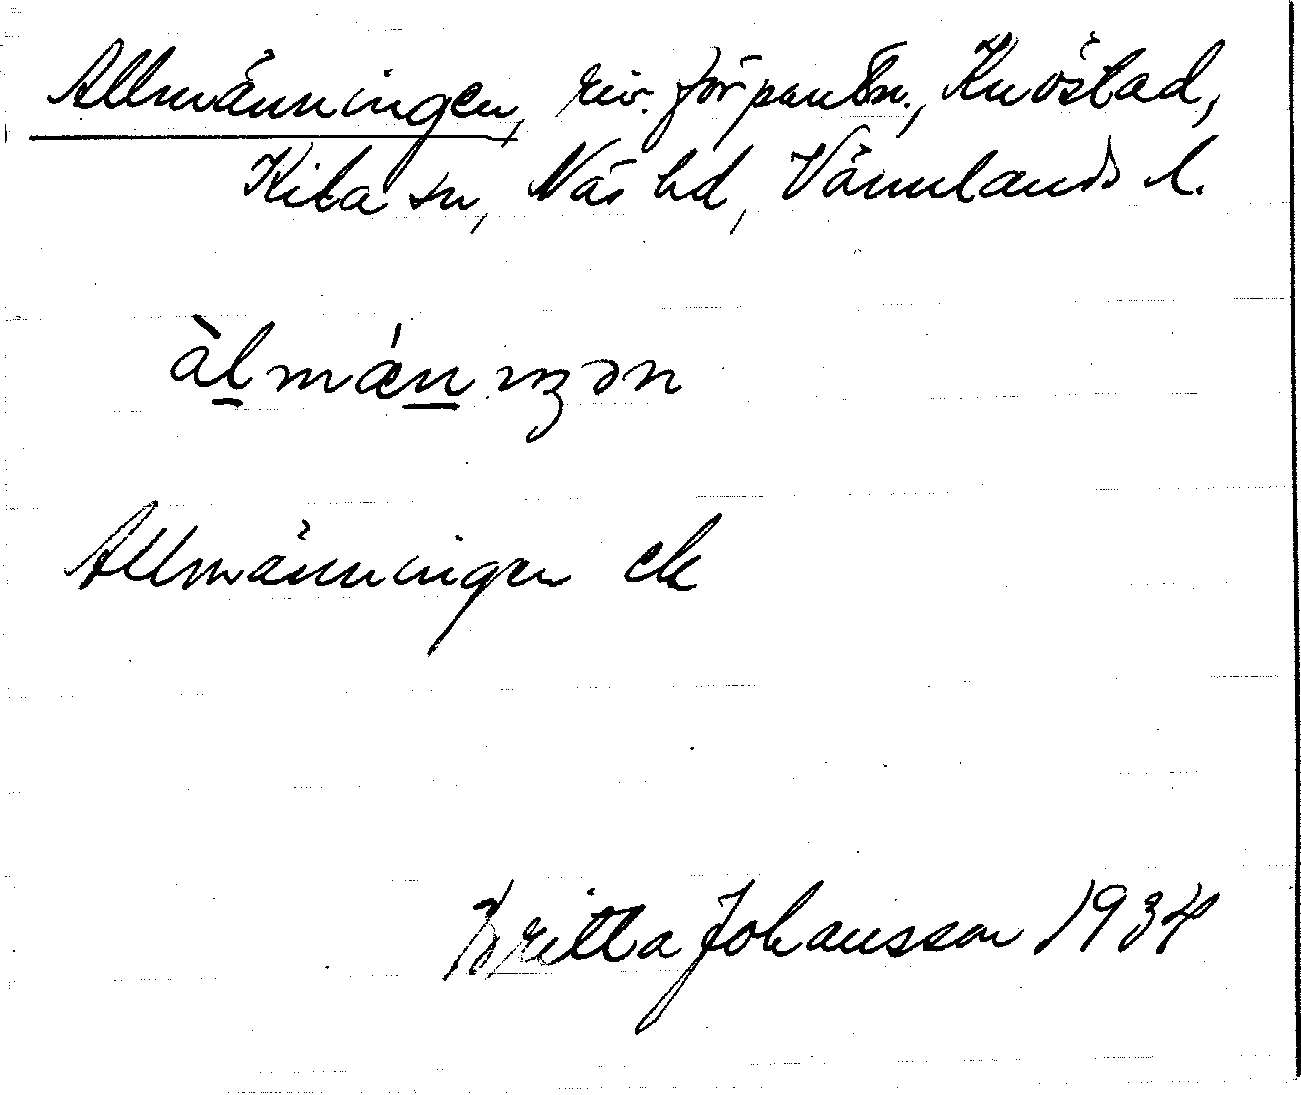 Allmänningen, riv. förpantn., Knöstad,
Kila sn, Näs hd, Värmlands l.
àlmǽnɪŋən
Allmänningen ek
Britta Johansson 1934